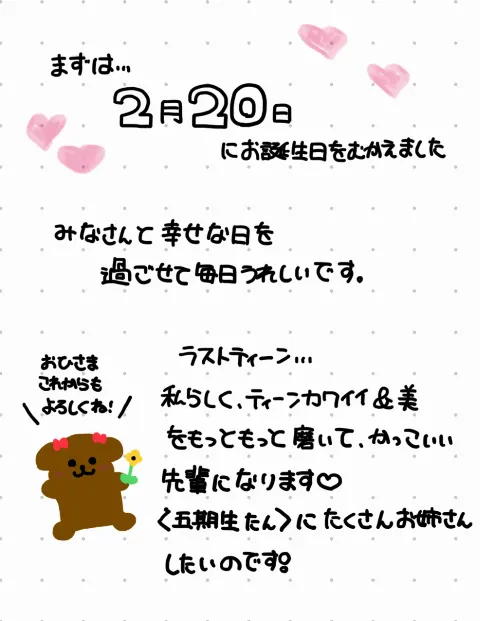 まずは…
2月20日
にお誕生日をむかえました
みなさんと幸せな日を
過ごせて毎日うれしいです。
おひさま
これからも
よろしくね!
ラストティーン…
私らしく、ティーンカワイイ&美
をもっともっと磨いて、かっこいい
先輩になります♡
〈五期生たん〉にたくさんお姉さん
したいのです!